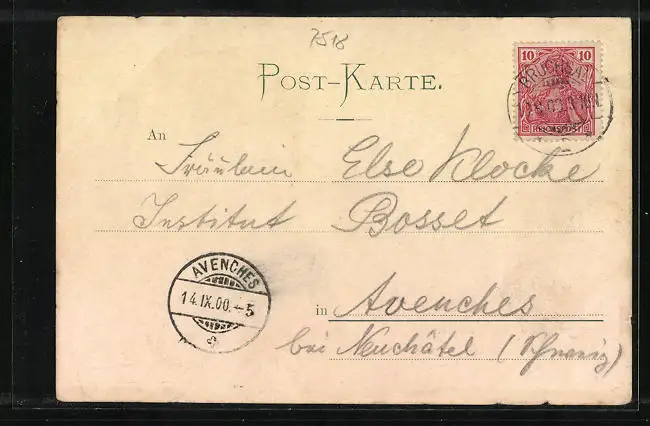 7518
POST-KARTE.
10 10
BRUCHSAL
REICHSPOST
An
Fräulein Else Klocke
Institut Bosset
AVENCHES
14.IX.00.-5
in Avenches
bei Neuchâtel (Schweiz)